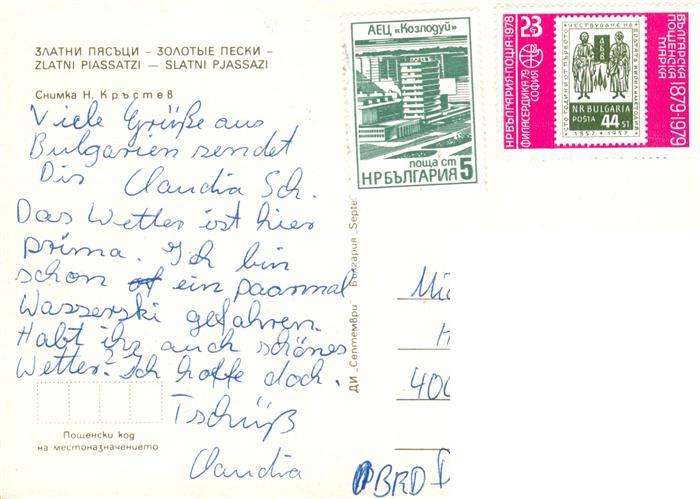 ЗЛАТНИ ПЯСЪЦИ – ЗОЛОТЫЕ ПЕСКИ –
ZLATNI PIASSATZI — SLATNI PJASSAZI
Снимка Н. Кръстев
Viele Grüße aus
Bulgarien sendet
Dir Claudia Sch.
Das Wetter ist hier
prima. Ich bin
schon ein paarmal
Wasserski gefahren.
Habt ihr auch schönes
Wetter? Ich hoffe doch.
Tschüß
Claudia
Пощенски код
на местоназначението
ДИ „Септември" България „Septe
АЕЦ „Козлодуй"
поща ст
НРБЪЛГАРИЯ 5
23
НРБЪЛГАРИЯ·ПОЩА·1978
ФИЛАСЕРДИКА '79
СОФИЯ
СТО ГОДИНИ ОТ ПЪРВОТО
ЧЕСТВУВАНЕ НА
БРАТЯТА КИРИЛ И МЕТОДИЙ
N.R. BULGARIA
POŠTA 44 ST
1857 1957
БЪЛГАРСКА
ПОЩЕНСКА
МАРКА
1879·1979
Mi
400
BRD